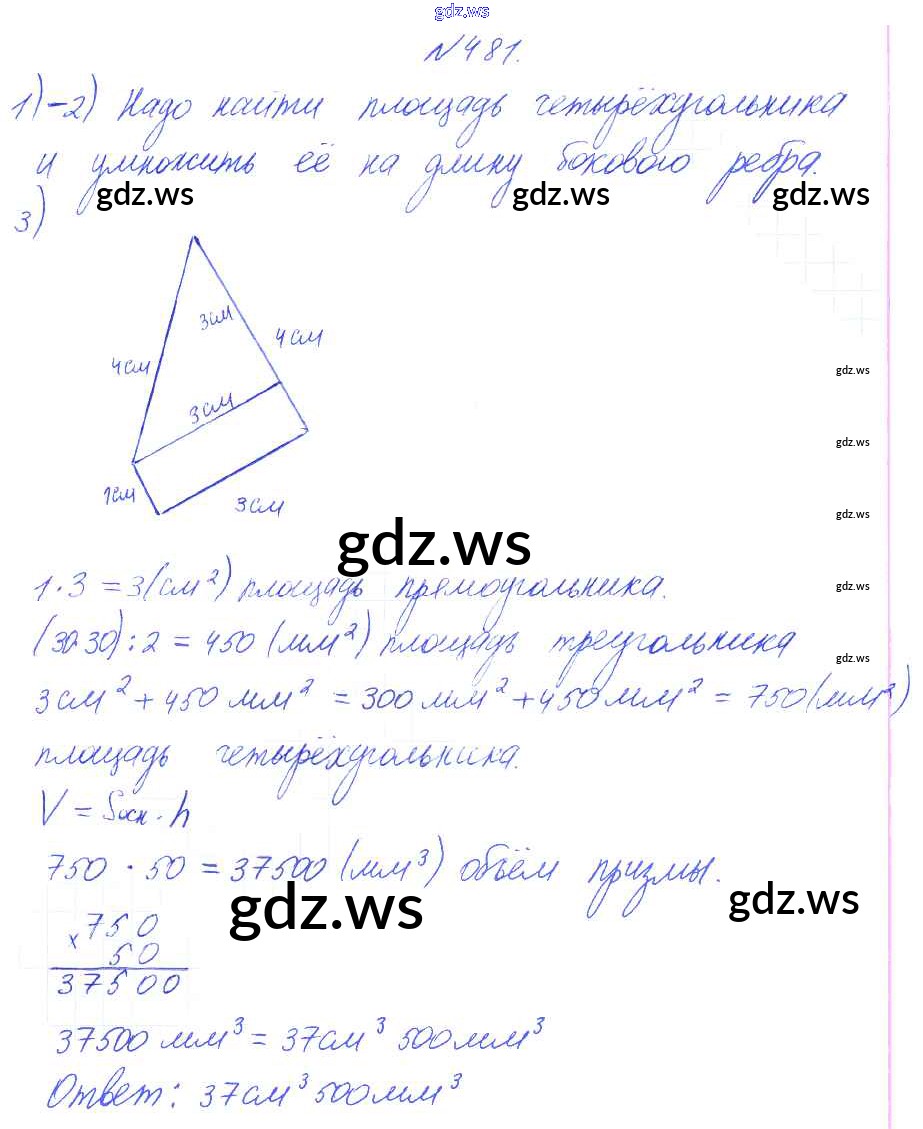 gdz.ws
№481.
1)-2) Надо найти площадь четырёхугольника
и умножить её на длину бокового ребра.
gdz.ws gdz.ws gdz.ws
3)
3см
4см
4см
gdz.ws
3см
gdz.ws
1см
3см
gdz.ws
gdz.ws
1·3=3(см²) площадь прямоугольника.
gdz.ws
(30·30):2=450(мм²) площадь треугольника
gdz.ws
3см²+450мм²=300мм²+450мм²=750(мм²)
площадь четырёхугольника.
V=Sосн·h
750·50=37500(мм³) объём призмы.
gdz.ws gdz.ws
×750
50
37500
37500мм³=37см³500мм³
Ответ: 37см³500мм³